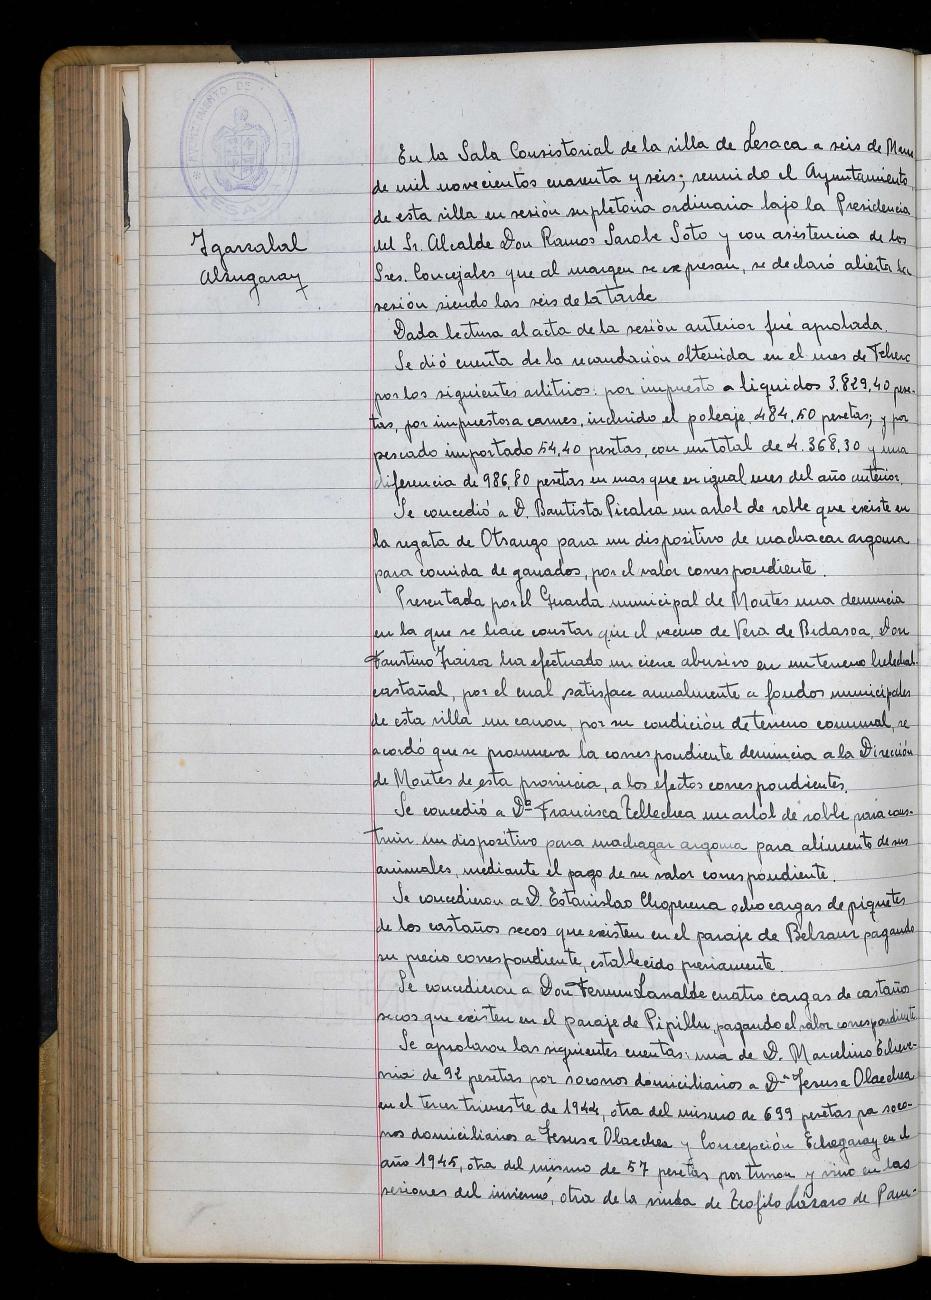 AYUNTAMIENTO DE
LESACA
Igarzabal
Alzugaray
En la Sala Consistorial de la villa de Lesaca a seis de Marzo
de mil novecientos cuarenta y seis; reunido el Ayuntamiento
de esta villa en sesión supletoria ordinaria bajo la Presidencia
del Sr. Alcalde Don Ramos Sarobe Soto y con asistencia de los
Sres. Concejales que al margen se expresan, se declaró abierta la
sesión siendo las seis de la tarde
Dada lectura al acta de la sesión anterior fué aprobada.
Se dió cuenta de la recaudación obtenida en el mes de Febrero
por los siguientes arbitrios: por impuesto a liquidos 3.829,40 pese-
tas, por impuestos a carnes, incluido el poleaje 484,50 pesetas; y por
pescado importado 54,40 pesetas, con un total de 4.368,30 y una
diferencia de 986,80 pesetas en mas que en igual mes del año anterior.
Se concedió a D. Bautista Picabea un arbol de roble que existe en
la regata de Otsango para un dispositivo de machacar argoma
para comida de ganados, por el valor correspondiente.
Presentada por el Guarda municipal de Montes una denuncia
en la que se hace constar que el vecino de Vera de Bidasoa, Don
Faustino Iraizoz ha efectuado un cierre abusivo en un terreno helechal-
castañal, por el cual satisface anualmente a fondos municipales
de esta villa un canon, por su condición de terreno comunal, se
acordó que se promueva la correspondiente denuncia a la Dirección
de Montes de esta provincia, a los efectos correspondientes.
Se concedió a Dª Francisca Tellechea un arbol de roble para cons-
truir un dispositivo para machagar argoma para alimento de sus
animales, mediante el pago de su valor correspondiente.
Se concedieron a D. Estanislao Choperena ocho cargas de piquetes
de los castaños secos que existen en el paraje de Belzaur pagando
su precio correspondiente, establecido previamente.
Se concedieron a Don Fermin Lanalde cuatro cargas de castaños
secos que existen en el paraje de Pipillu, pagando el valor correspondiente
Se aprobaron las siguientes cuentas: una de D. Marcelino Echeve-
rria de 92 pesetas por socorros domiciliarios a Dª Jesusa Olaechea
en el tercer trimestre de 1944, otra del mismo de 699 pesetas por soco-
rros domiciliarios a Jesusa Olaechea y Concepción Echegaray en el
año 1945, otra del mismo de 57 pesetas por turron y vino en las
sesiones del invierno, otra de la viuda de Teofilo Lazaro de Pam-